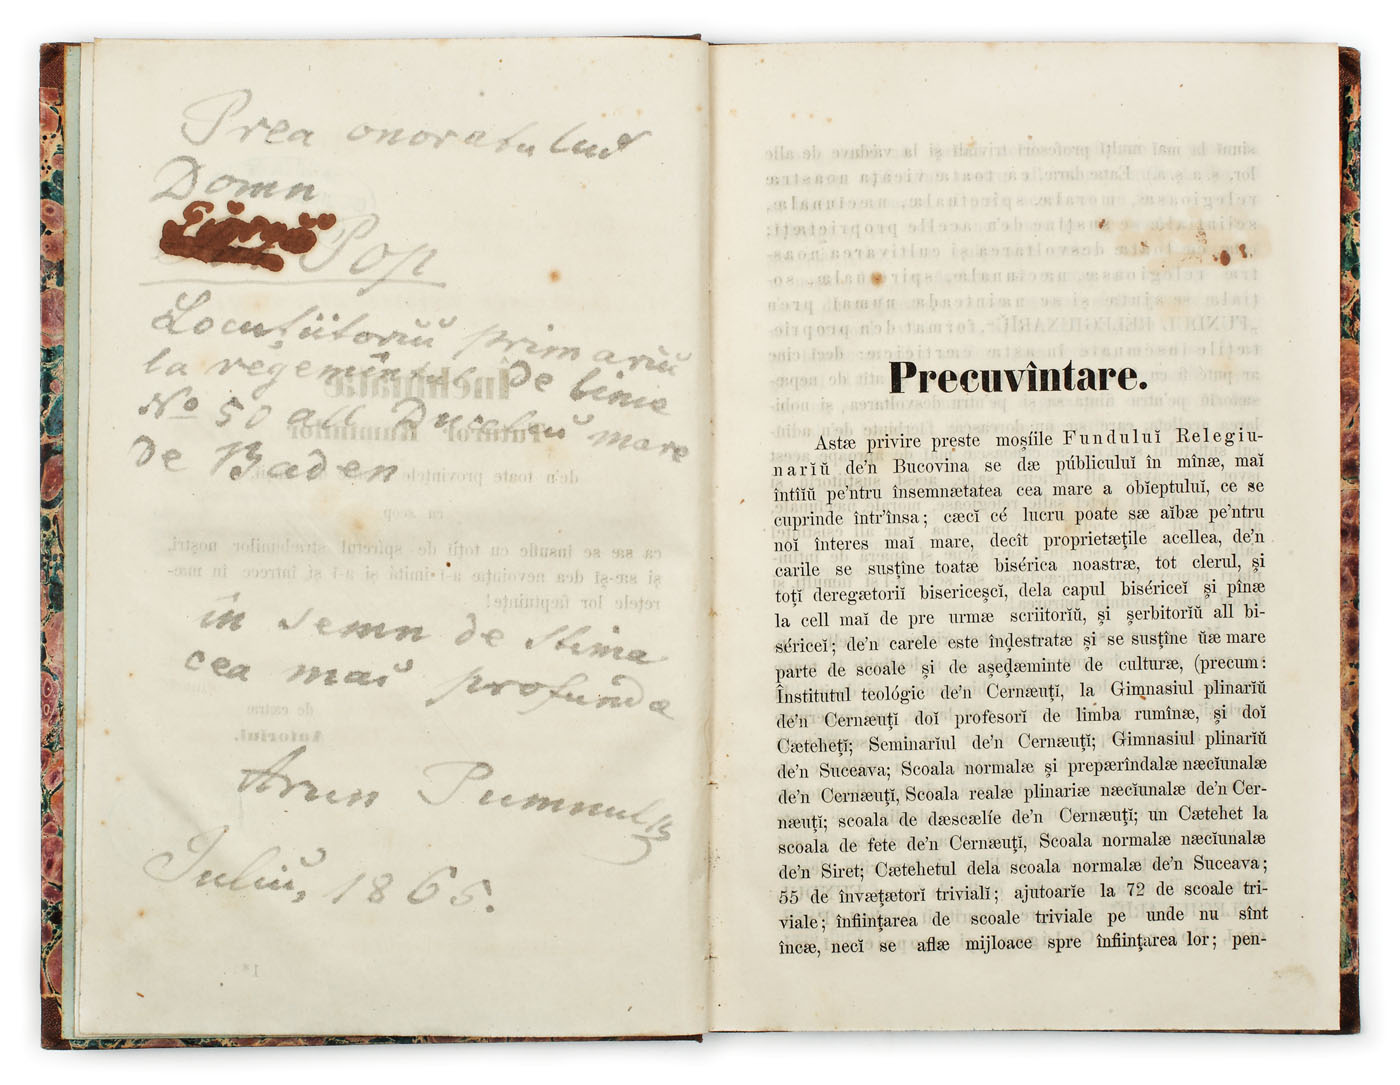 Prea onoratului
Domn
Pop
Locuțiitoriŭ primariŭ
la regemîntul de linie
No 50 all Duceluĭ mare
de Baden
în semn de stima
cea maĭ profunda
Arun Pumnul
Juliŭ, 1865.
Precuvîntare.
Astæ privire preste moșíile Funduluĭ Relegiu-
nariŭ de'n Bucovina se dæ públiculuĭ în mînæ, maĭ
întîĭŭ pe'ntru însemnætatea cea mare a obĭeptuluĭ, ce se
cuprinde într'însa; cæcĭ cé lucru poate sæ aĭbæ pe'ntru
noĭ înteres maĭ mare, decît proprietæțile acellea, de'n
carile se susține toatæ bisérica noastræ, tot clerul, și
toțĭ deregætoriĭ bisericescĭ, dela capul bisériceĭ și pînæ
la cell maĭ de pre urmæ scriitoriŭ, și șerbitoriŭ all bi-
séricĕĭ; de'n carele este îndestratæ și se susține ŭæ mare
parte de scoale și de așeḑæminte de culturæ, (precum:
Înstitutul teológic de'n Cernæuțĭ, la Gimnasiul plinariŭ
de'n Cernæuțĭ doĭ profesorĭ de limba rumînæ, și doĭ
Cætehețĭ; Seminariul de'n Cernæuțĭ; Gimnasiul plinariŭ
de'n Suceava; Scoala normalæ și prepærîndalæ næcĭunalæ
de'n Cernæuțĭ, Scoala realæ plinariæ næcĭunalæ de'n Cer-
næuțĭ; scoala de dæscælíe de'n Cernæuțĭ; un Cætehet la
scoala de fete de'n Cernæuțĭ, Scoala normalæ næcĭunalæ
de'n Siret; Cætehetul dela scoala normalæ de'n Suceava;
55 de învæțætorĭ trivialĭ; ajutoarĭe la 72 de scoale tri-
viale; înființarea de scoale triviale pe unde nu sînt
încæ, necĭ se aflæ mijloace spre înființarea lor; pen-